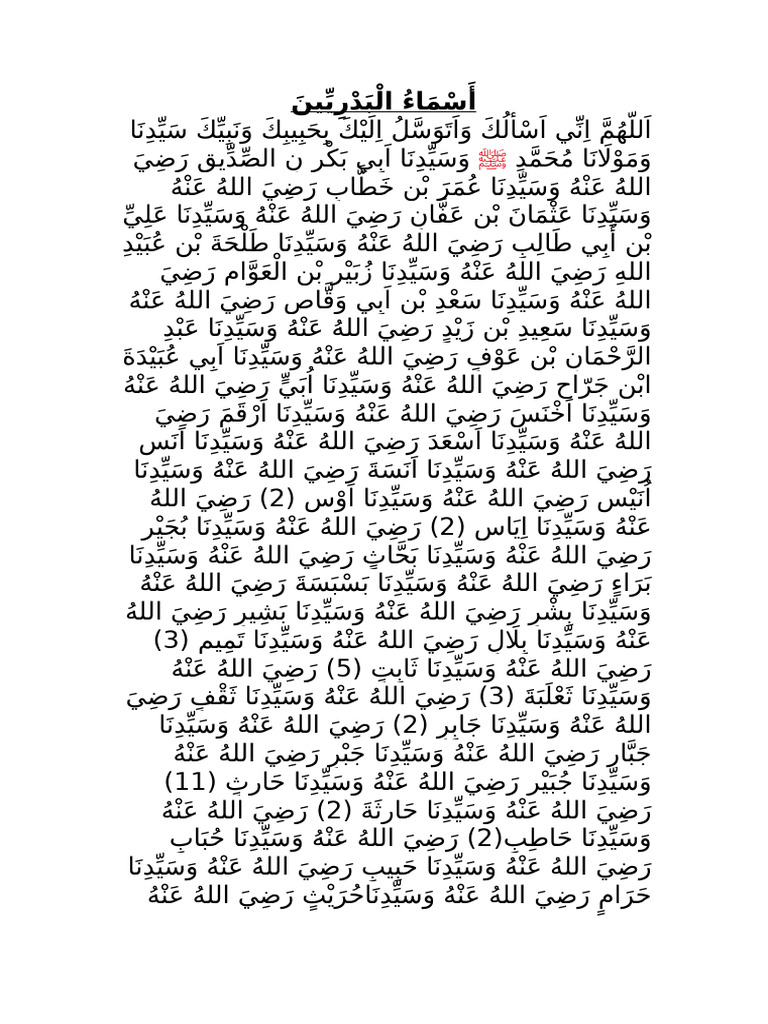 أَسْمَاءُ الْبَدْرِيِّينَ
اَللّهُمَّ اِنِّي اَسْألُكَ وَاَتَوَسَّلُ اِلَيْكَ بِحَبِيبِكَ وَنَبِيِّكَ سَيِّدِنَا
وَمَوْلَانَا مُحَمَّدٍ ﷺ وَسَيِّدِنَا اَبِي بَكْرٍ ن الصِّدِّيقِ رَضِيَ
اللهُ عَنْهُ وَسَيِّدِنَا عُمَرَ بْنِ خَطَّابِ رَضِيَ اللهُ عَنْهُ
وَسَيِّدِنَا عَثْمَانَ بْنِ عَفَّانِ رَضِيَ اللهُ عَنْهُ وَسَيِّدِنَا عَلِيِّ
بْنِ أَبِي طَالِبِ رَضِيَ اللهُ عَنْهُ وَسَيِّدِنَا طَلْحَةَ بْنِ عُبَيْدِ
اللهِ رَضِيَ اللهُ عَنْهُ وَسَيِّدِنَا زُبَيْرِ بْنِ الْعَوَّامِ رَضِيَ
اللهُ عَنْهُ وَسَيِّدِنَا سَعْدِ بْنِ اَبِي وَقَّاصِ رَضِيَ اللهُ عَنْهُ
وَسَيِّدِنَا سَعِيدِ بْنِ زَيْدٍ رَضِيَ اللهُ عَنْهُ وَسَيِّدِنَا عَبْدِ
الرَّحْمَانِ بْنِ عَوْفِ رَضِيَ اللهُ عَنْهُ وَسَيِّدِنَا اَبِي عُبَيْدَةَ
ابْنِ جَرّاحِ رَضِيَ اللهُ عَنْهُ وَسَيِّدِنَا اُبَيٍّ رَضِيَ اللهُ عَنْهُ
وَسَيِّدِنَا اَخْنَسَ رَضِيَ اللهُ عَنْهُ وَسَيِّدِنَا اَرْقَمَ رَضِيَ
اللهُ عَنْهُ وَسَيِّدِنَا اَسْعَدَ رَضِيَ اللهُ عَنْهُ وَسَيِّدِنَا اَنَسِ
رَضِيَ اللهُ عَنْهُ وَسَيِّدِنَا اَنَسَةَ رَضِيَ اللهُ عَنْهُ وَسَيِّدِنَا
اُنَيْسِ رَضِيَ اللهُ عَنْهُ وَسَيِّدِنَا اَوْسِ (2) رَضِيَ اللهُ
عَنْهُ وَسَيِّدِنَا اِيَاسِ (2) رَضِيَ اللهُ عَنْهُ وَسَيِّدِنَا بُجَيْرِ
رَضِيَ اللهُ عَنْهُ وَسَيِّدِنَا بَحَّاثٍ رَضِيَ اللهُ عَنْهُ وَسَيِّدِنَا
بَرَاءٍ رَضِيَ اللهُ عَنْهُ وَسَيِّدِنَا بَسْبَسَةَ رَضِيَ اللهُ عَنْهُ
وَسَيِّدِنَا بِشْرِ رَضِيَ اللهُ عَنْهُ وَسَيِّدِنَا بَشِيرِ رَضِيَ اللهُ
عَنْهُ وَسَيِّدِنَا بِلَالِ رَضِيَ اللهُ عَنْهُ وَسَيِّدِنَا تَمِيمِ (3)
رَضِيَ اللهُ عَنْهُ وَسَيِّدِنَا ثَابِتِ (5) رَضِيَ اللهُ عَنْهُ
وَسَيِّدِنَا ثَعْلَبَةَ (3) رَضِيَ اللهُ عَنْهُ وَسَيِّدِنَا ثَقْفِ رَضِيَ
اللهُ عَنْهُ وَسَيِّدِنَا جَابِرِ (2) رَضِيَ اللهُ عَنْهُ وَسَيِّدِنَا
جَبَّارِ رَضِيَ اللهُ عَنْهُ وَسَيِّدِنَا جَبْرِ رَضِيَ اللهُ عَنْهُ
وَسَيِّدِنَا جُبَيْرِ رَضِيَ اللهُ عَنْهُ وَسَيِّدِنَا حَارِثٍ (11)
رَضِيَ اللهُ عَنْهُ وَسَيِّدِنَا حَارِثَةَ (2) رَضِيَ اللهُ عَنْهُ
وَسَيِّدِنَا حَاطِبِ(2) رَضِيَ اللهُ عَنْهُ وَسَيِّدِنَا حُبَابِ
رَضِيَ اللهُ عَنْهُ وَسَيِّدِنَا حَبِيبِ رَضِيَ اللهُ عَنْهُ وَسَيِّدِنَا
حَرَامٍ رَضِيَ اللهُ عَنْهُ وَسَيِّدِنَاحُرَيْثٍ رَضِيَ اللهُ عَنْهُ